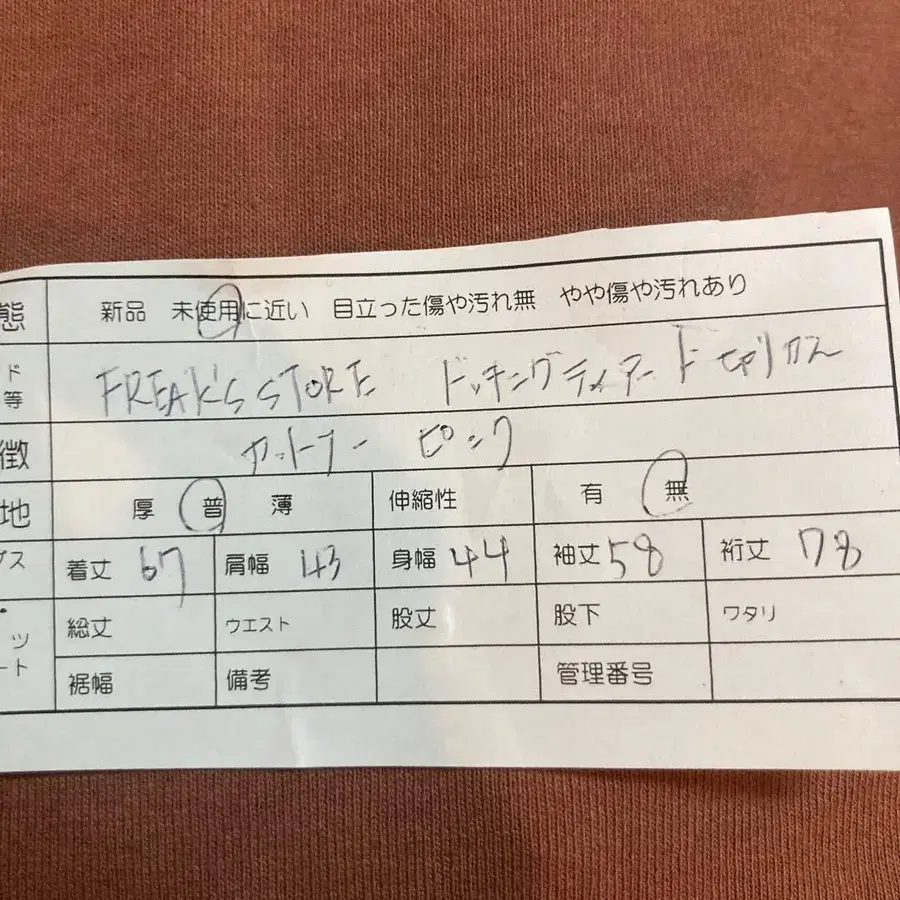 態 新品 未使用に近い 目立った傷や汚れ無 やや傷や汚れあり
ド
等 FREAK'S STORE ドッキングティアード
徴 カットソー ピンク
地 厚 普 薄 伸縮性 有 無
プス 着丈 67 肩幅 43 身幅 44 袖丈 58 裄丈 78
ツ 総丈 ウエスト 股丈 股下 ワタリ
ート 裾幅 備考 管理番号